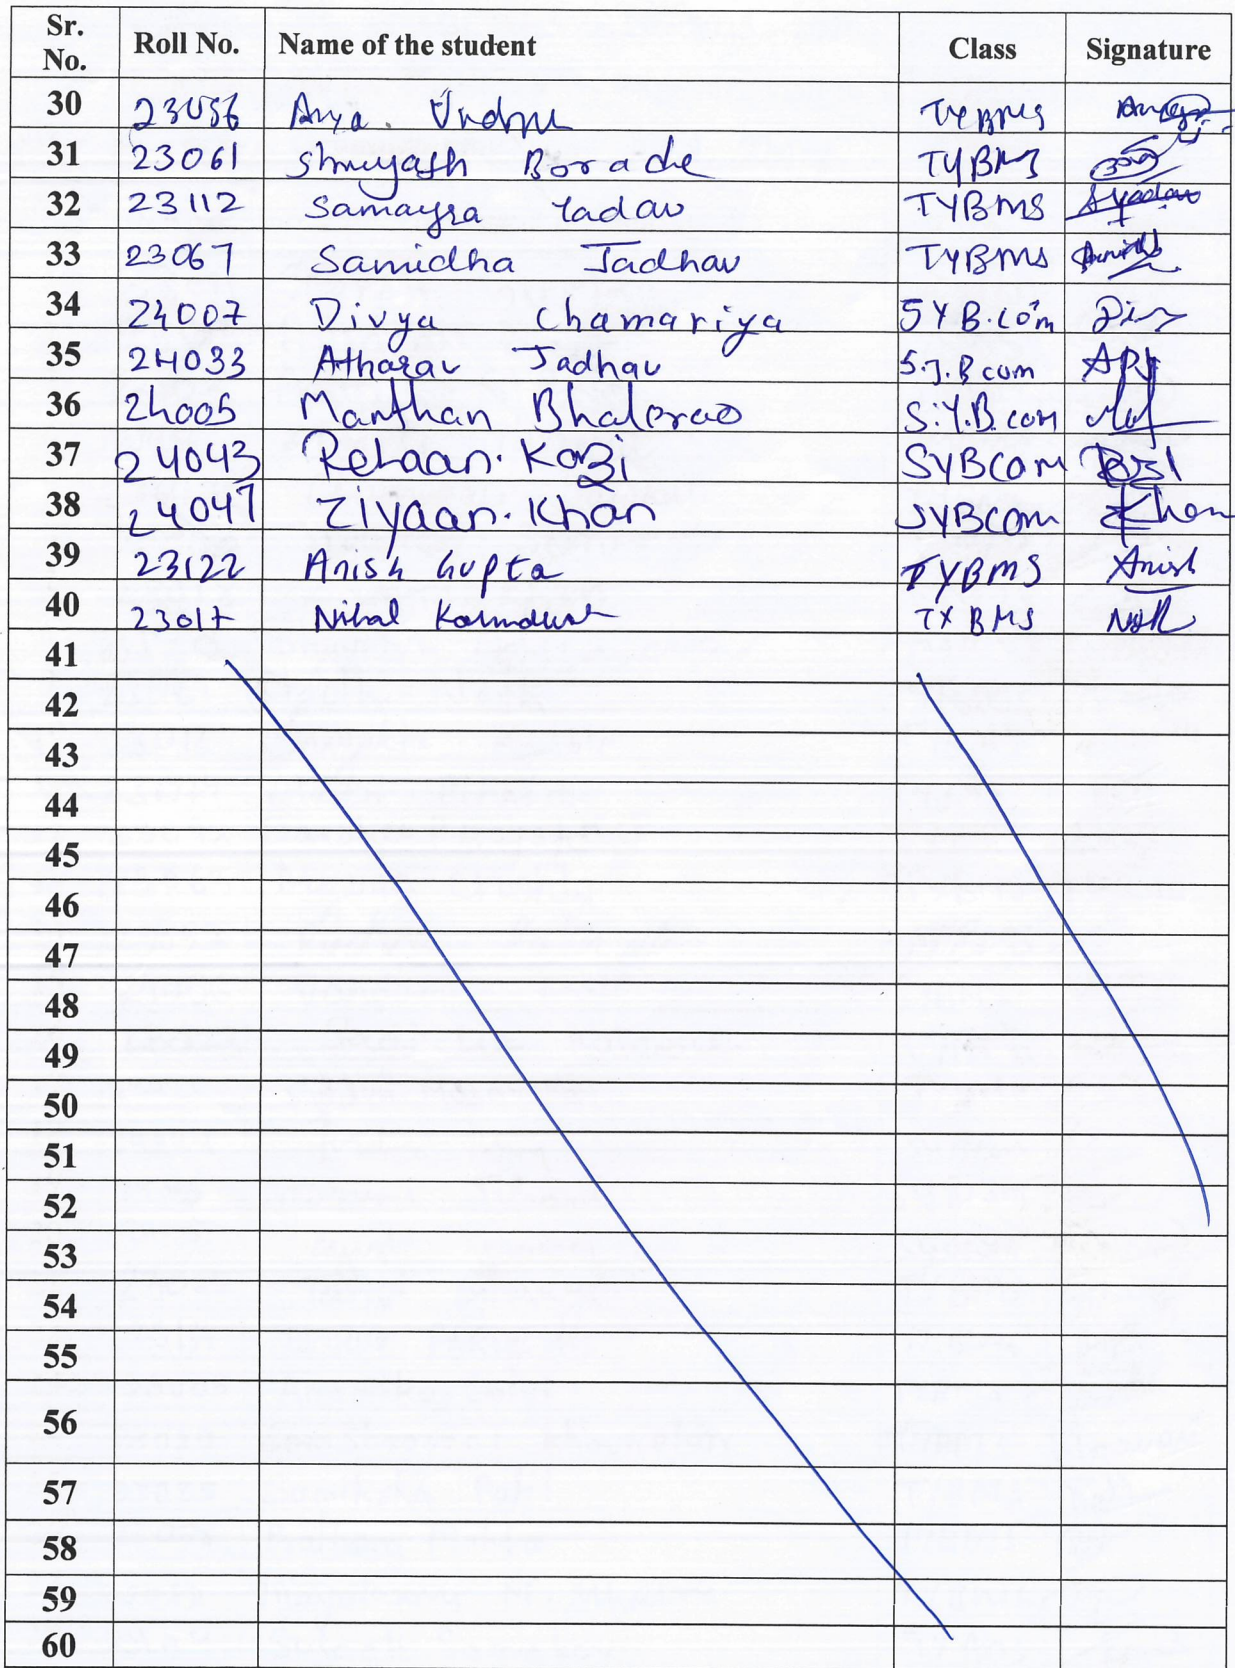 Sr. No. Roll No. Name of the student Class Signature
30 23056 Arya TYBMS
31 23061 Shreyash Borade TYBMS
32 23112 Samayra Yadav TYBMS Syadav
33 23067 Samidha Jadhav TYBMS
34 24007 Divya Chamariya SYB.com
35 24033 Atharav Jadhav S.Y.B com APJ
36 24005 Manthan Bhalerao S.Y.B.com
37 24043 Rehaan. Kazi SYBCOM
38 24047 Ziyaan. Khan SYBCOM Zkhan
39 23122 Anish Gupta TYBMS Anish
40 23017 Nihal TYBMS
41
42
43
44
45
46
47
48
49
50
51
52
53
54
55
56
57
58
59
60